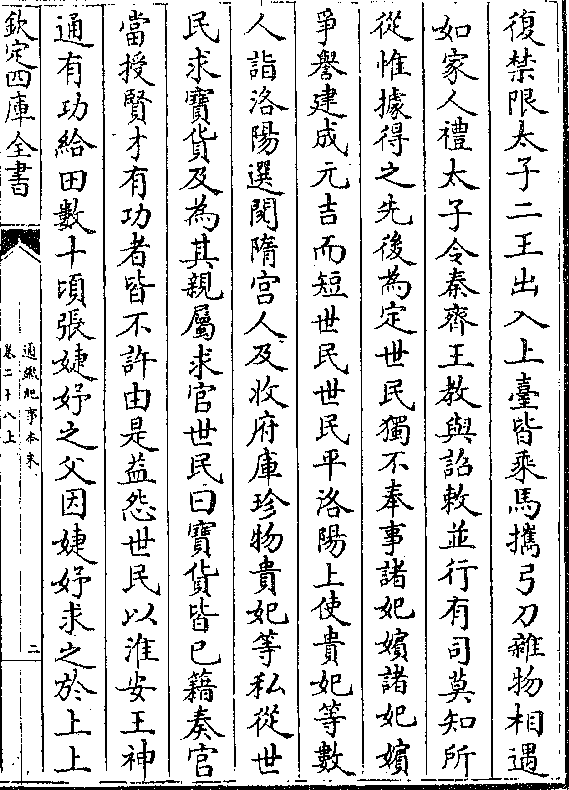 復禁限太子二王出入上臺皆乘馬攜弓刀雜物相遇
如家人禮太子令秦齊王教與詔敕並行有司莫知所
從惟據得之先後為定世民獨不奉事諸妃嬪諸妃嬪
爭譽建成元吉而短世民世民平洛陽上使貴妃等數
人詣洛陽選閱隋宫人及收府庫珍物貴妃等私從世
民求寶貨及為其親屬求官世民曰寶貨皆已籍奏官
當授賢才有功者皆不許由是益怨世民以淮安王神
通有功給田數十頃張婕妤之父因婕妤求之於上上
欽定四庫全書
通鑑紀事本末
卷二十八上
二